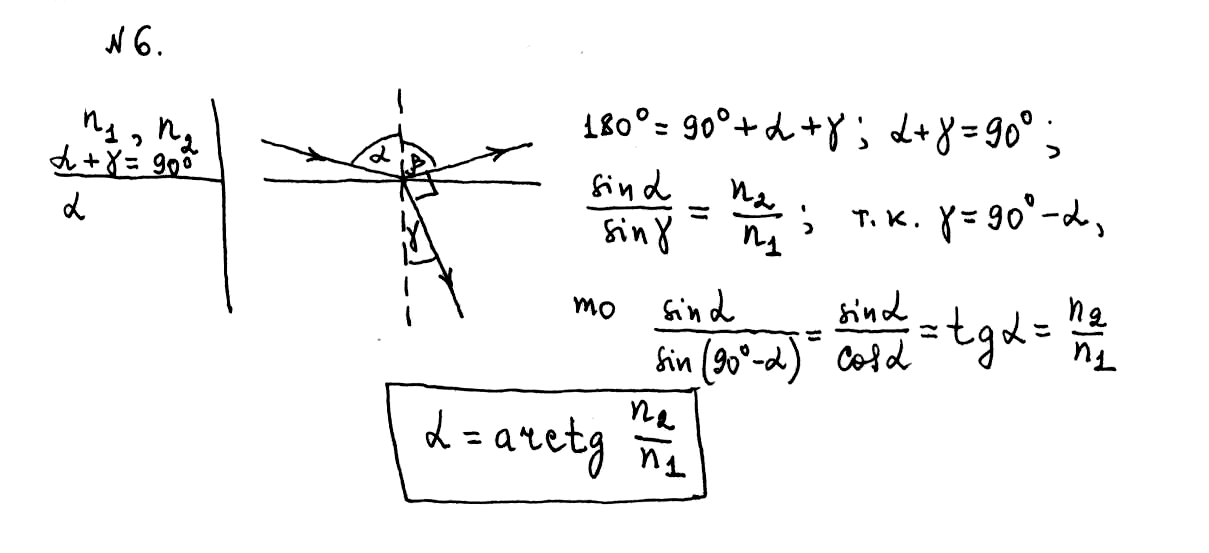 N 6.
n₁, n₂
α + γ = 90°
α
α β
γ
180° = 90° + α + γ; α + γ = 90°;
sin α / sin γ = n₂ / n₁; т.к. γ = 90° - α,
то sin α / sin (90° - α) = sin α / cos α = tg α = n₂ / n₁
α = arctg n₂ / n₁